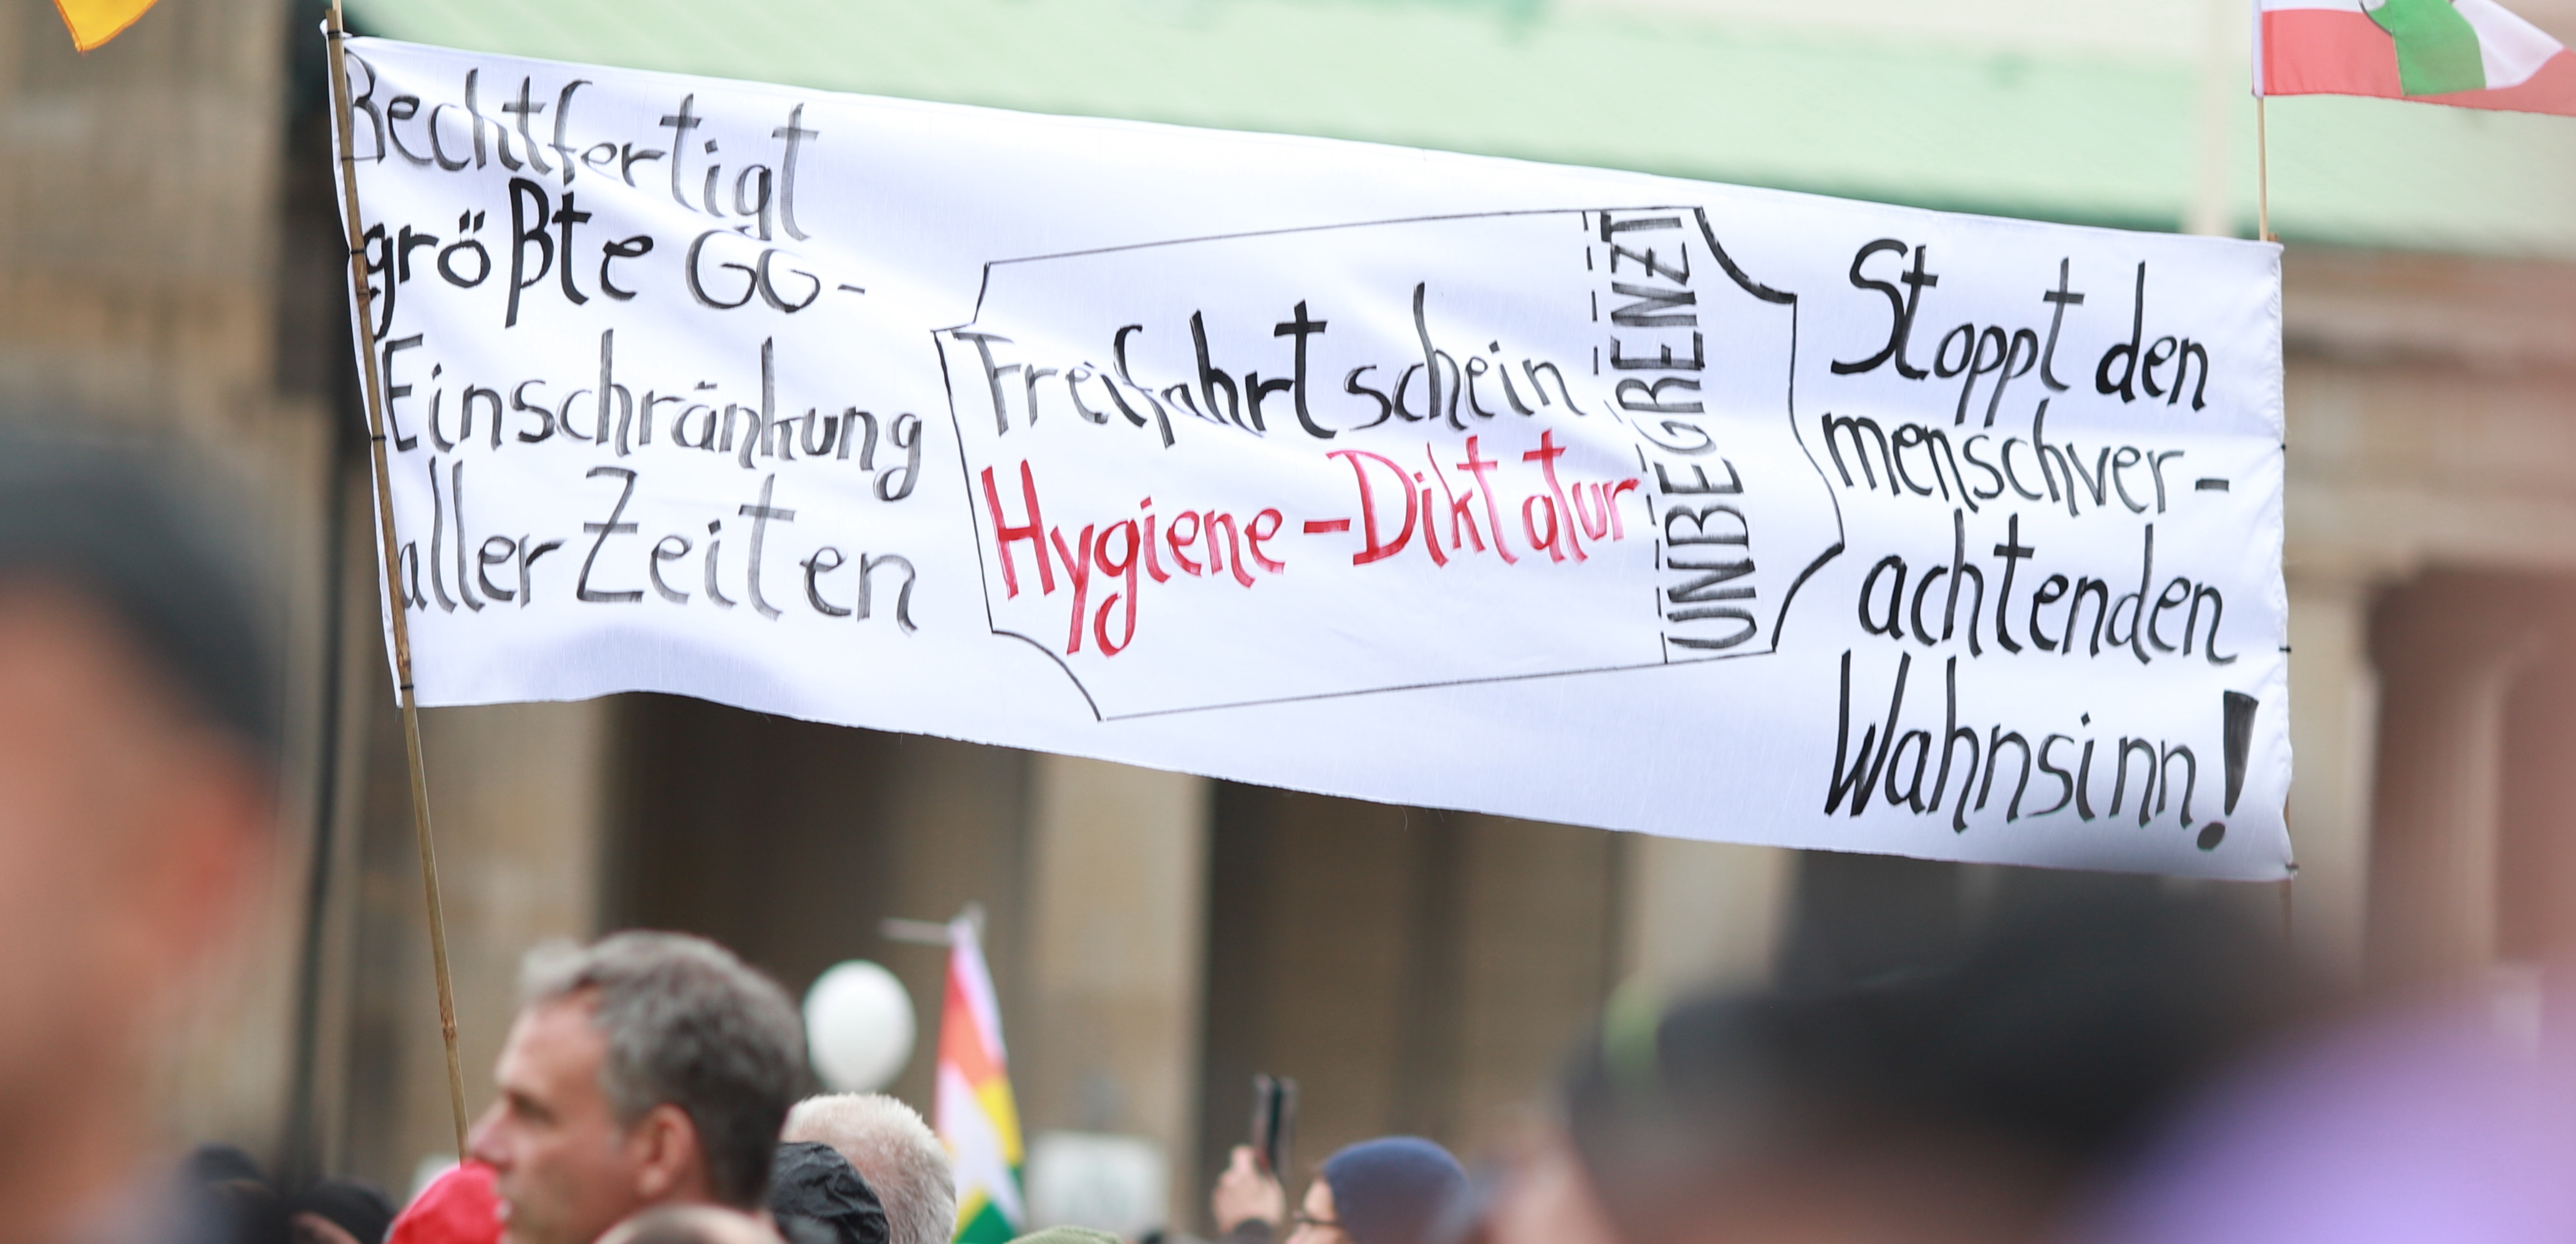 Rechtfertigt
größte GG-
Einschränkung
aller Zeiten
Freifahrtschein
Hygiene-Diktatur
UNBEGRENZT
Stoppt den
menschver-
achtenden
Wahnsinn!